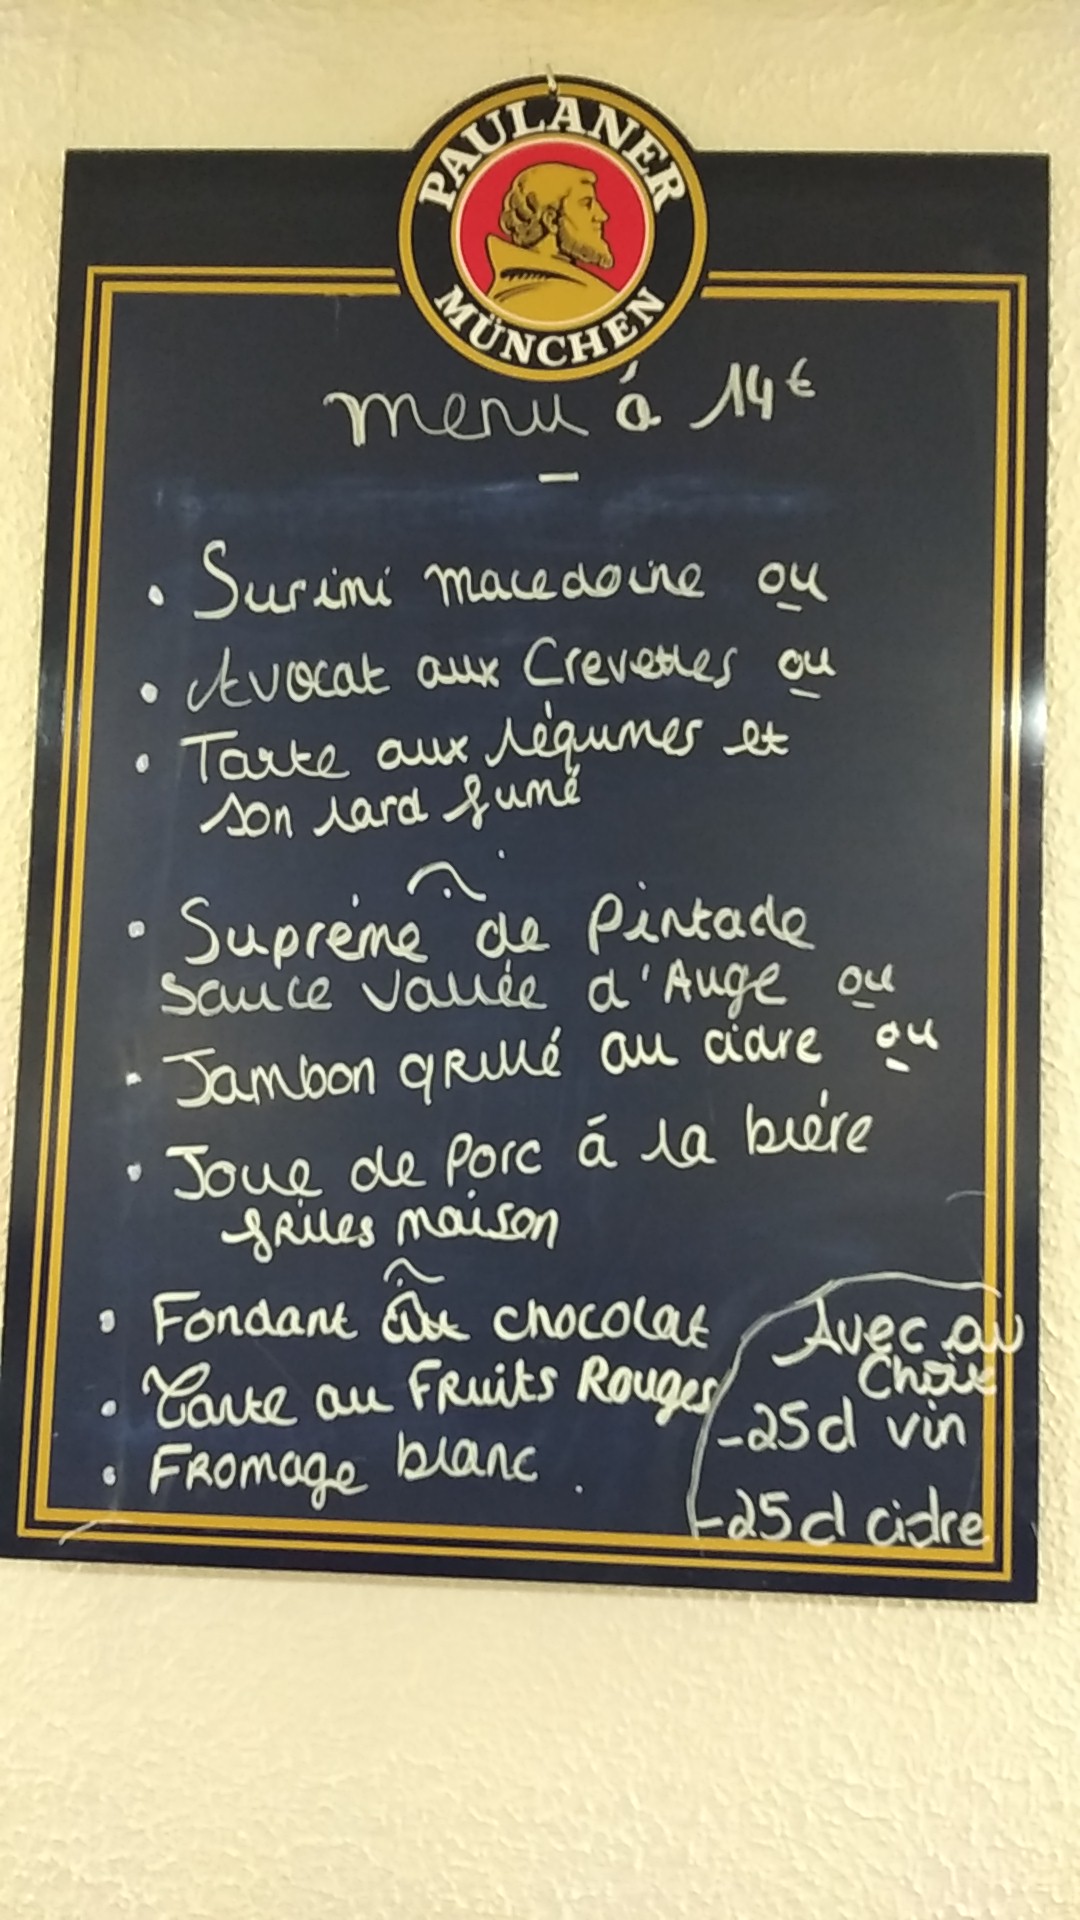 PAULANER
MÜNCHEN
menu á 14€
• Surimi macedoine ou
• Avocat aux Crevettes ou
• Tarte aux légumes et
son lard fumé
• Supréme de Pintade
Sauce Vallée d'Auge ou
• Jambon grillé au cidre ou
• Joue de Porc á la biére
frites maison
• Fondant au chocolat
• Tarte au Fruits Rouges
• Fromage blanc.
Avec au
Choix
-25cl vin
-25cl cidre